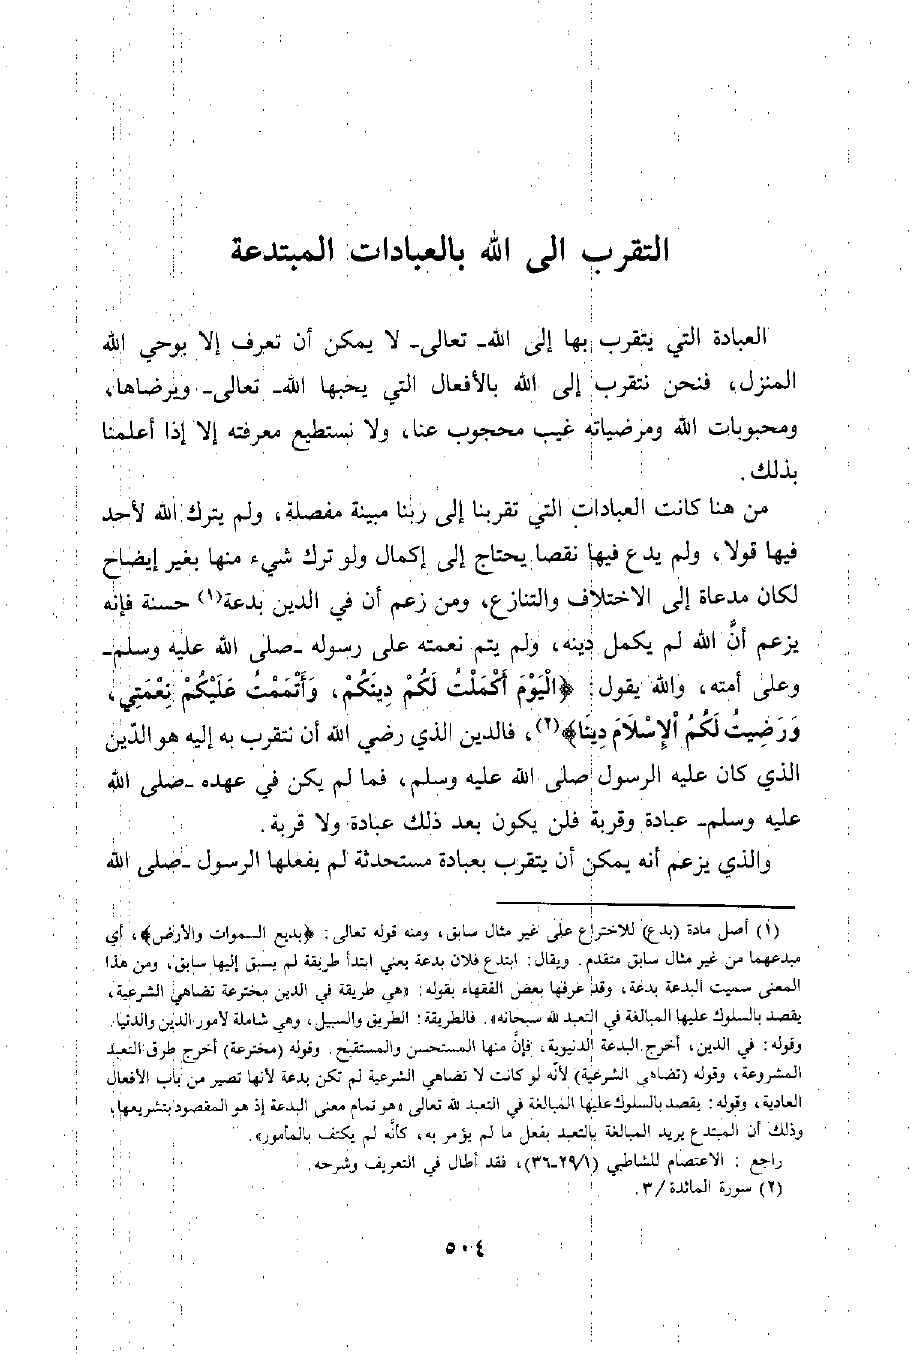 التقرب الى الله بالعبادات المبتدعة
العبادة التي يتقرب بها إلى الله- تعالى- لا يمكن أن تعرف إلا بوحي الله
المنزل، فنحن نتقرب إلى الله بالأفعال التي يحبها الله- تعالى- ويرضاها،
ومحبوبات الله ومرضياته غيب محجوب عنا، ولا نستطيع معرفته إلا إذا أعلمنا
بذلك.
من هنا كانت العبادات التي تقربنا إلى ربنا مبينة مفصلة، ولم يترك الله لأحد
فيها قولا، ولم يدع فيها نقصا يحتاج إلى إكمال ولو ترك شيء منها بغير إيضاح
لكان مدعاة إلى الاختلاف والتنازع، ومن زعم أن في الدين بدعة(١) حسنة فإنه
يزعم أنَّ الله لم يكمل دينه، ولم يتم نعمته على رسوله -صلى الله عليه وسلم-
وعلى أمته، والله يقول: ﴿الْيَوْمَ أَكْمَلْتُ لَكُمْ دِينَكُمْ، وَأَتْمَمْتُ عَلَيْكُمْ نِعْمَتِي،
وَرَضِيتُ لَكُمُ الْإِسْلَامَ دِينًا﴾(٢)، فالدين الذي رضي الله أن نتقرب به إليه هو الدّين
الذي كان عليه الرسول صلى الله عليه وسلم، فما لم يكن في عهده -صلى الله
عليه وسلم- عبادة وقربة فلن يكون بعد ذلك عبادة ولا قربة.
والذي يزعم أنه يمكن أن يتقرب بعبادة مستحدثة لم يفعلها الرسول -صلى الله
(١) أصل مادة (بدع) للاختراع على غير مثال سابق، ومنه قوله تعالى: ﴿بديع السموات والأرض﴾، أي
مبدعهما من غير مثال سابق متقدم. ويقال: ابتدع فلان بدعة يعني ابتدأ طريقة لم يسبق إليها سابق، ومن هذا
المعنى سميت البدعة بدعة، وقد عرفها بعض الفقهاء بقوله: «هي طريقة في الدين مخترعة تضاهي الشرعية،
يقصد بالسلوك عليها المبالغة في التعبد لله سبحانه». فالطريقة: الطريق والسبيل، وهي شاملة لأمور الدين والدنيا.
وقوله: في الدين، أخرج البدعة الدنيوية، فإنَّ منها المستحسن والمستقبح. وقوله (مخترعة) أخرج طرق التعبد
المشروعة، وقوله (تضاهى الشرعية) لأنّه لو كانت لا تضاهي الشرعية لم تكن بدعة لأنها تصير من باب الأفعال
العادية، وقوله: يقصد بالسلوك عليها المبالغة في التعبد لله تعالى «هو تمام معنى البدعة إذ هو المقصود بتشريعها،
وذلك أن المبتدع يريد المبالغة بالتعبد بفعل ما لم يؤمر به، كأنَّه لم يكتف بالمأمور».
راجع : الاعتصام للشاطبي (٢٩/١-٣٦)، فقد أطال في التعريف وشرحه.
(٢) سورة المائدة/٣.
٥٠٤